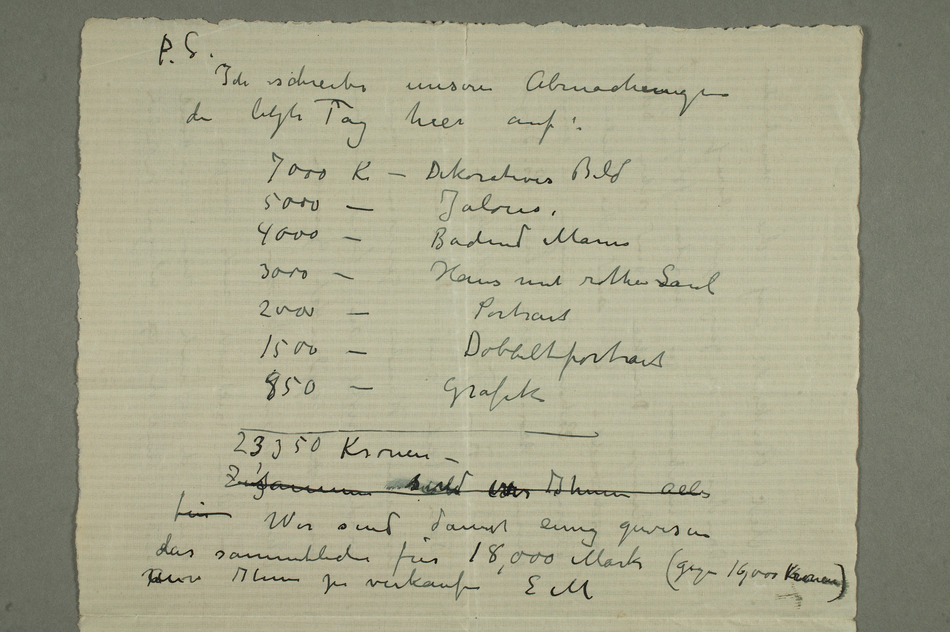 P.S.
Ich schreibe unsere Abmachungen
de letzte Tag hier auf:
7000 Kr – Dekoratives Bild
5000 – Jalousi.
4000 – Badend Mann
3000 – Haus mit rother
2000 – Portrait
1500 – Dobbeltportrait
850 – Grafik
23350 Kronen –
Zusammen sind Ihnen alles
für Wir sind damit einig gewesen
das sammtliche für 18,000 Mark (gegen 16,000 Kronen)
Ihnen zu verkaufen E M